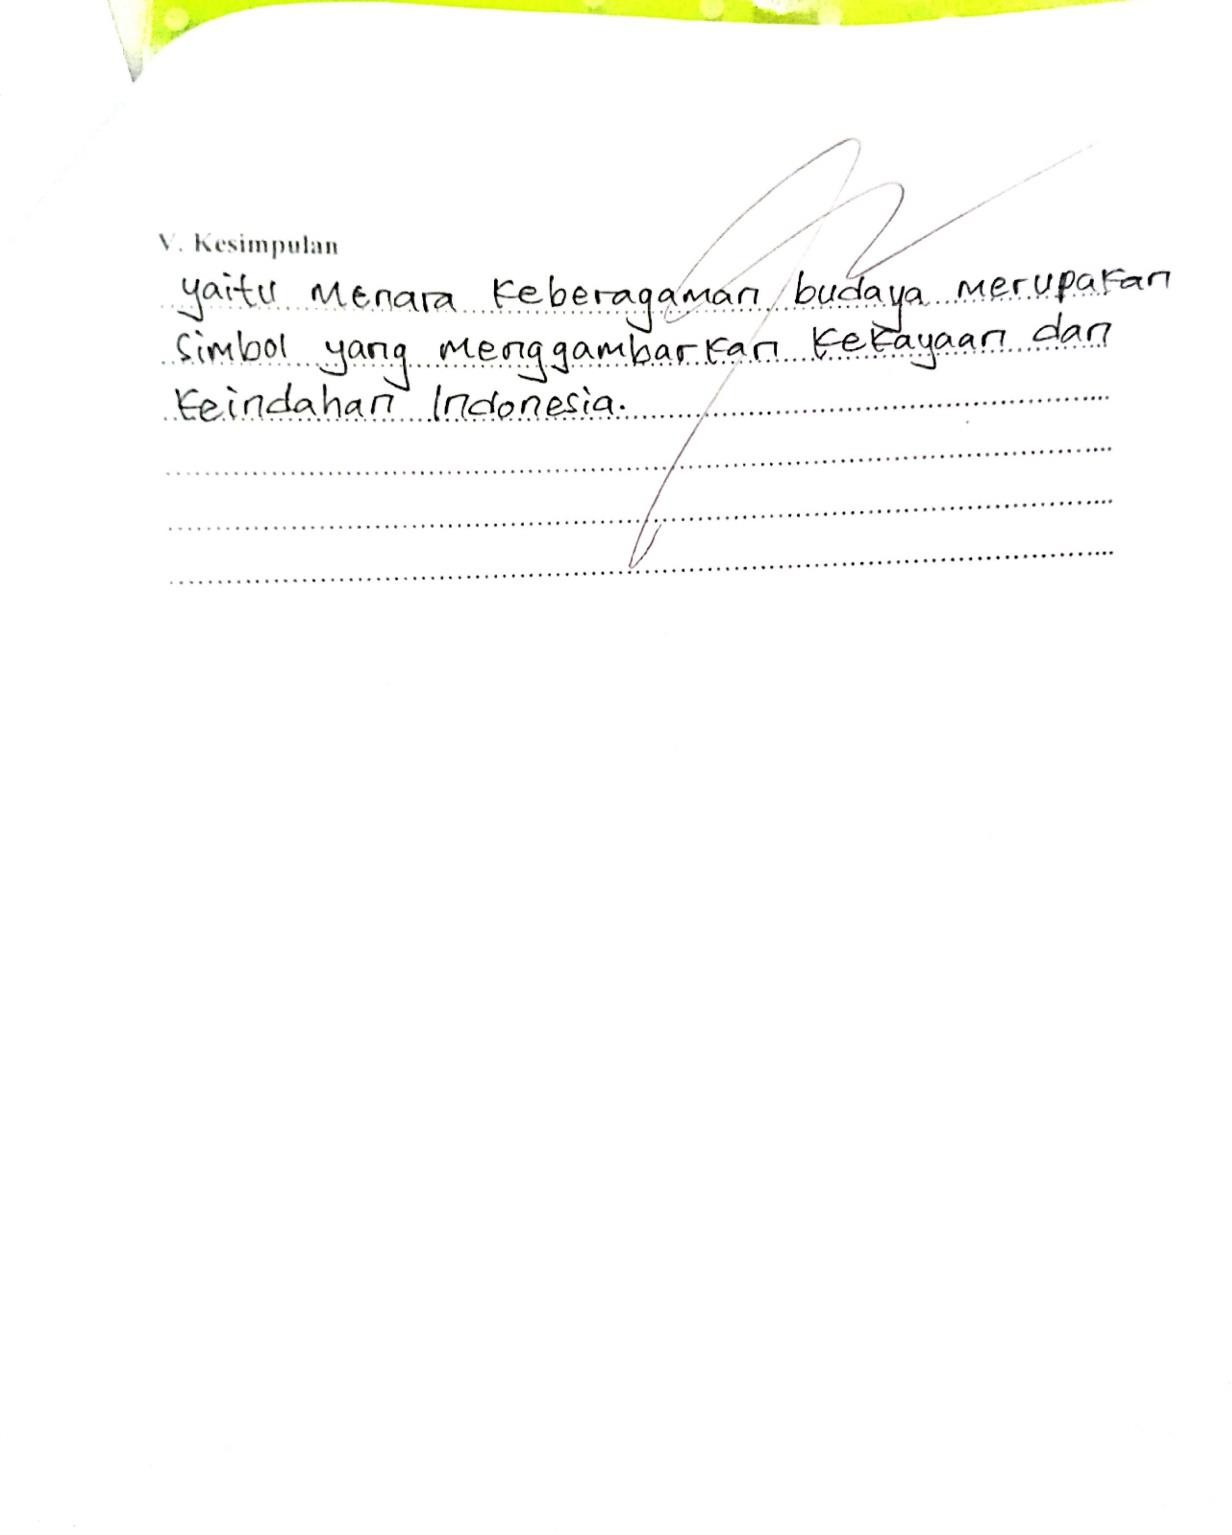 V. Kesimpulan
yaitu Menara Keberagaman budaya merupakan
Simbol yang menggambarkan kekayaan dan
Keindahan Indonesia.